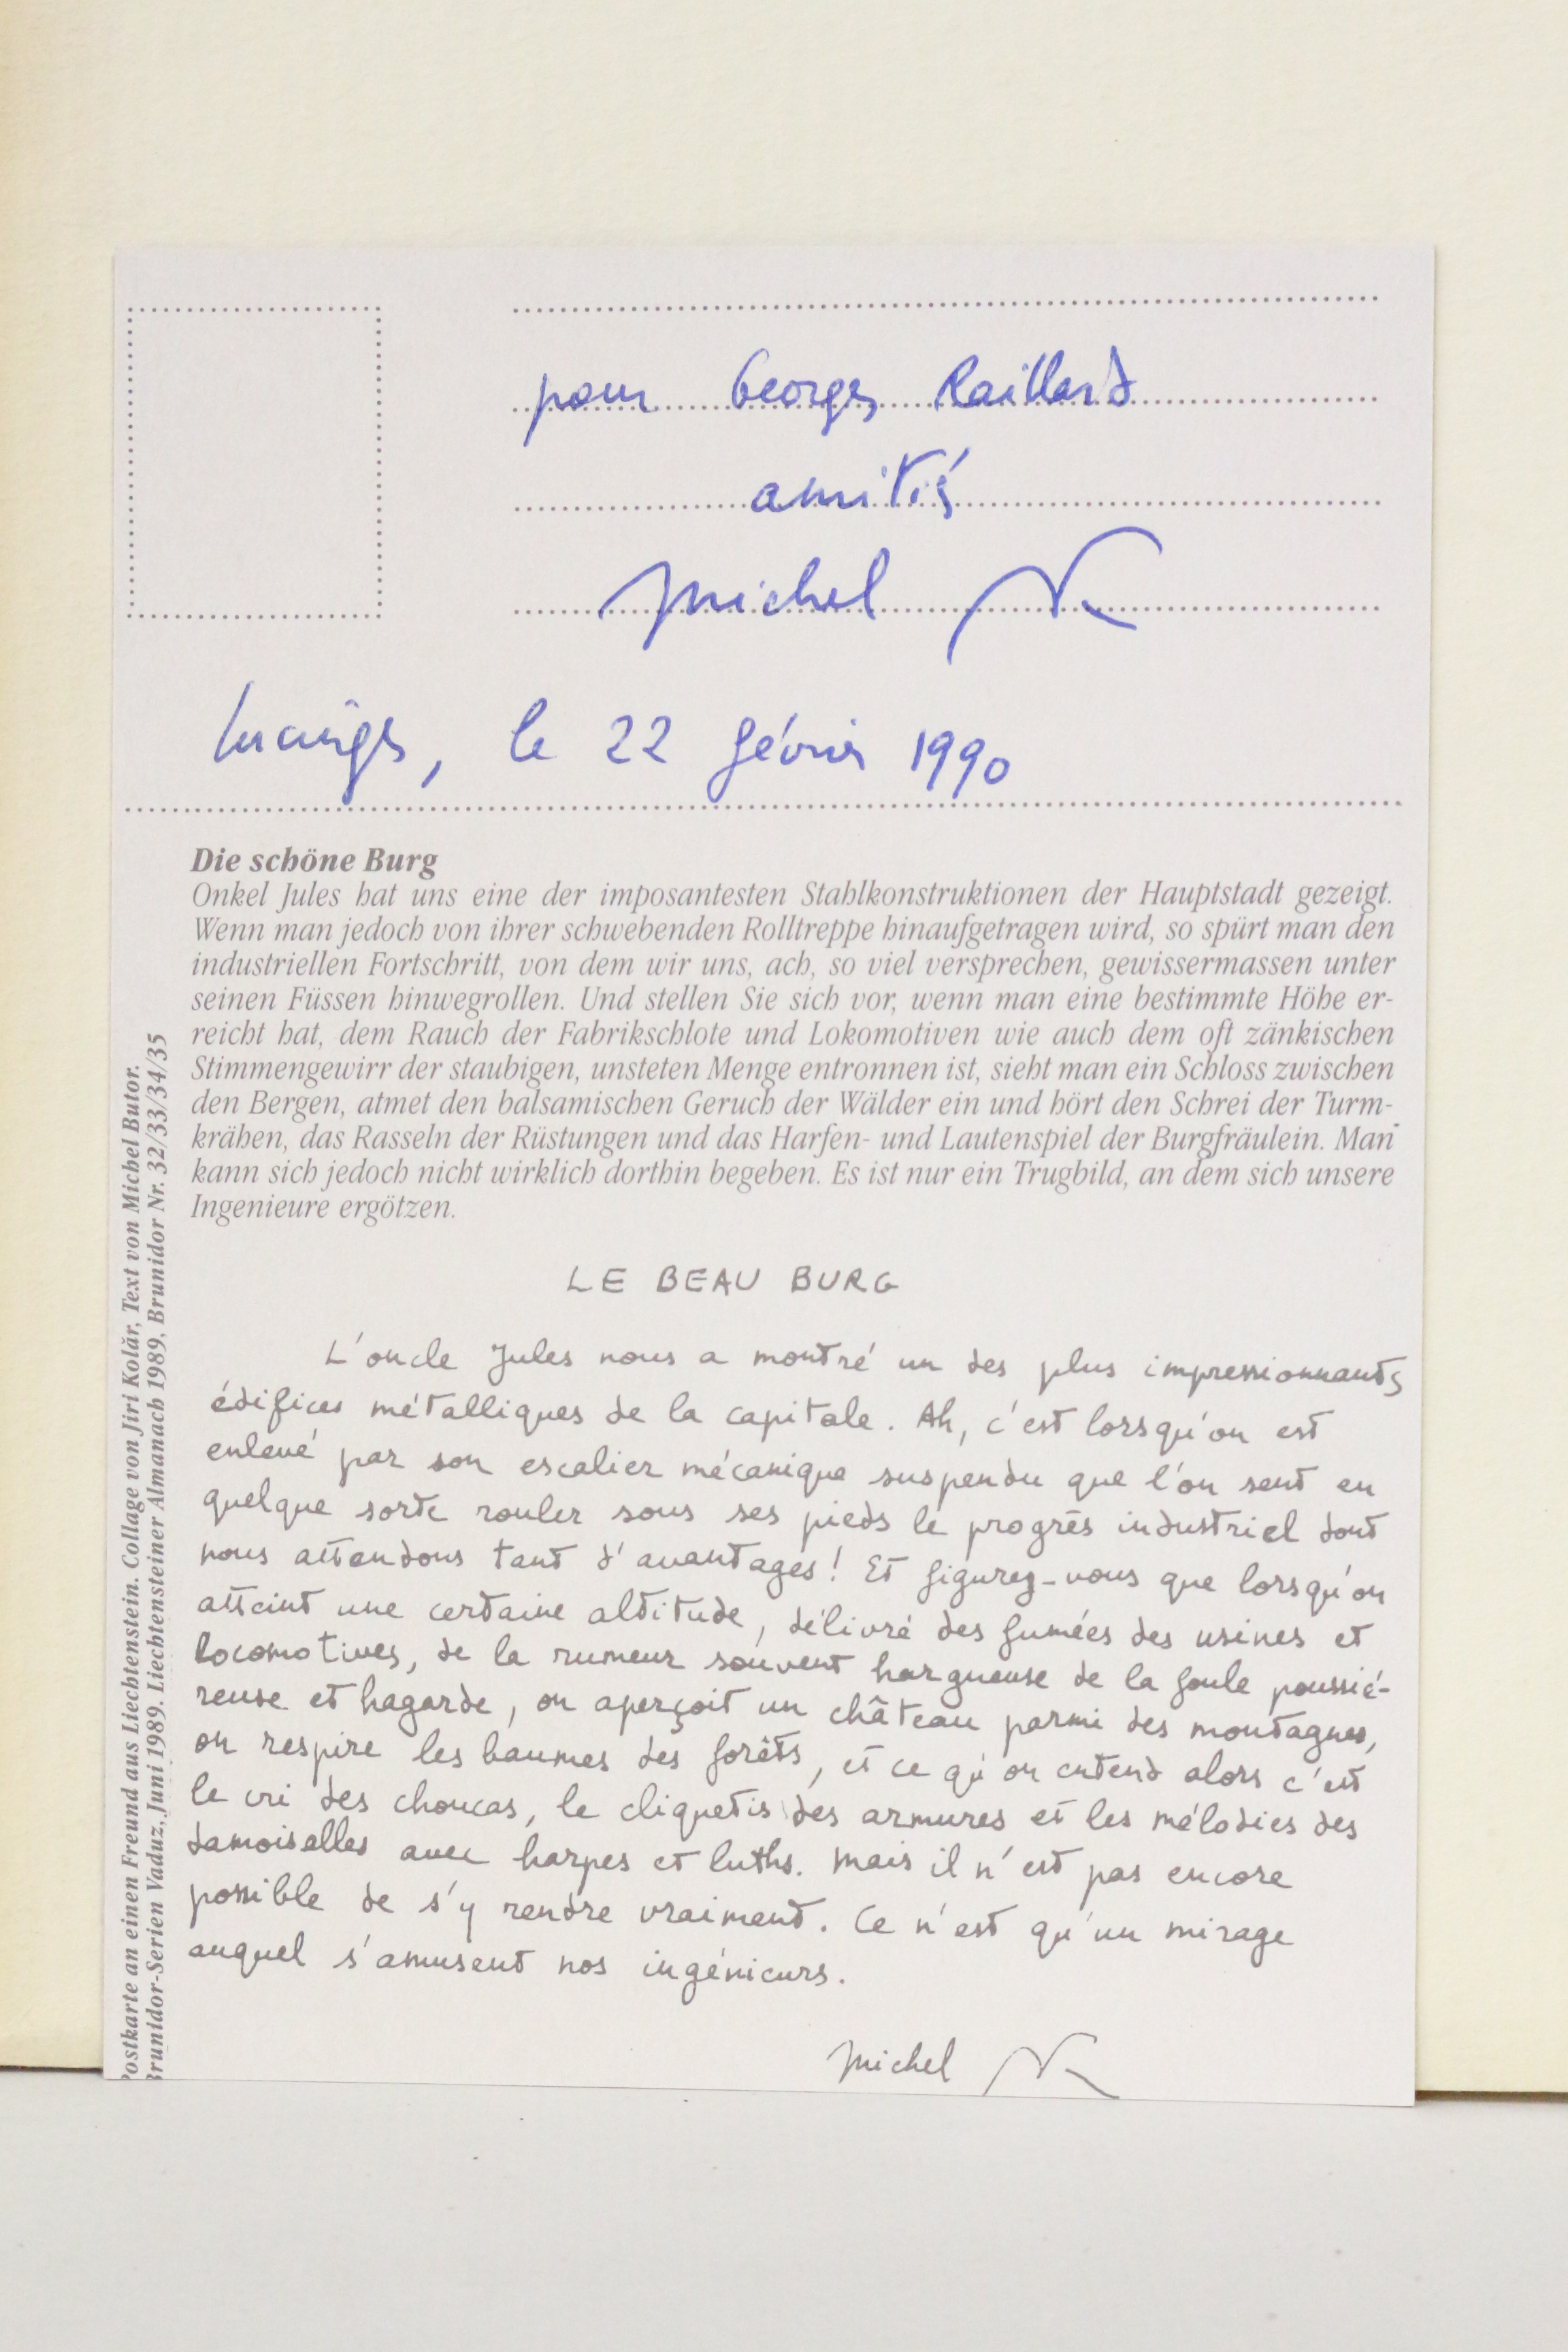 pour Georges Raillard
amitiés
Michel
Lucinges, le 22 février 1990
Die schöne Burg
Onkel Jules hat uns eine der imposantesten Stahlkonstruktionen der Hauptstadt gezeigt.
Wenn man jedoch von ihrer schwebenden Rolltreppe hinaufgetragen wird, so spürt man den
industriellen Fortschritt, von dem wir uns, ach, so viel versprechen, gewissermassen unter
seinen Füssen hinwegrollen. Und stellen Sie sich vor, wenn man eine bestimmte Höhe er-
reicht hat, dem Rauch der Fabrikschlote und Lokomotiven wie auch dem oft zänkischen
Stimmengewirr der staubigen, unsteten Menge entronnen ist, sieht man ein Schloss zwischen
den Bergen, atmet den balsamischen Geruch der Wälder ein und hört den Schrei der Turm-
krähen, das Rasseln der Rüstungen und das Harfen- und Lautenspiel der Burgfräulein. Man
kann sich jedoch nicht wirklich dorthin begeben. Es ist nur ein Trugbild, an dem sich unsere
Ingenieure ergötzen.
LE BEAU BURG
L'oncle Jules nous a montré un des plus impressionnants
édifices métalliques de la capitale. Ah, c'est lorsqu'on est
enlevé par son escalier mécanique suspendu que l'on sent en
quelque sorte rouler sous ses pieds le progrès industriel dont
nous attendons tant d'avantages! Et figurez-vous que lorsqu'on
atteint une certaine altitude, délivré des fumées des usines et
locomotives, de la rumeur souvent hargneuse de la foule poussié-
reuse et hagarde, on aperçoit un château parmi des montagnes,
on respire les baumes des forêts, et ce qu'on entend alors c'est
le cri des choucas, le cliquetis des armures et les mélodies des
damoiselles avec harpes et luths. Mais il n'est pas encore
possible de s'y rendre vraiment. Ce n'est qu'un mirage
auquel s'amusent nos ingénieurs.
Michel
Postkarte an einen Freund aus Liechtenstein. Collage von Jiri Kolăr, Text von Michel Butor.
Brunidor-Serien Vaduz, Juni 1989. Liechtensteiner Almanach 1989, Brunidor Nr. 32/33/34/35